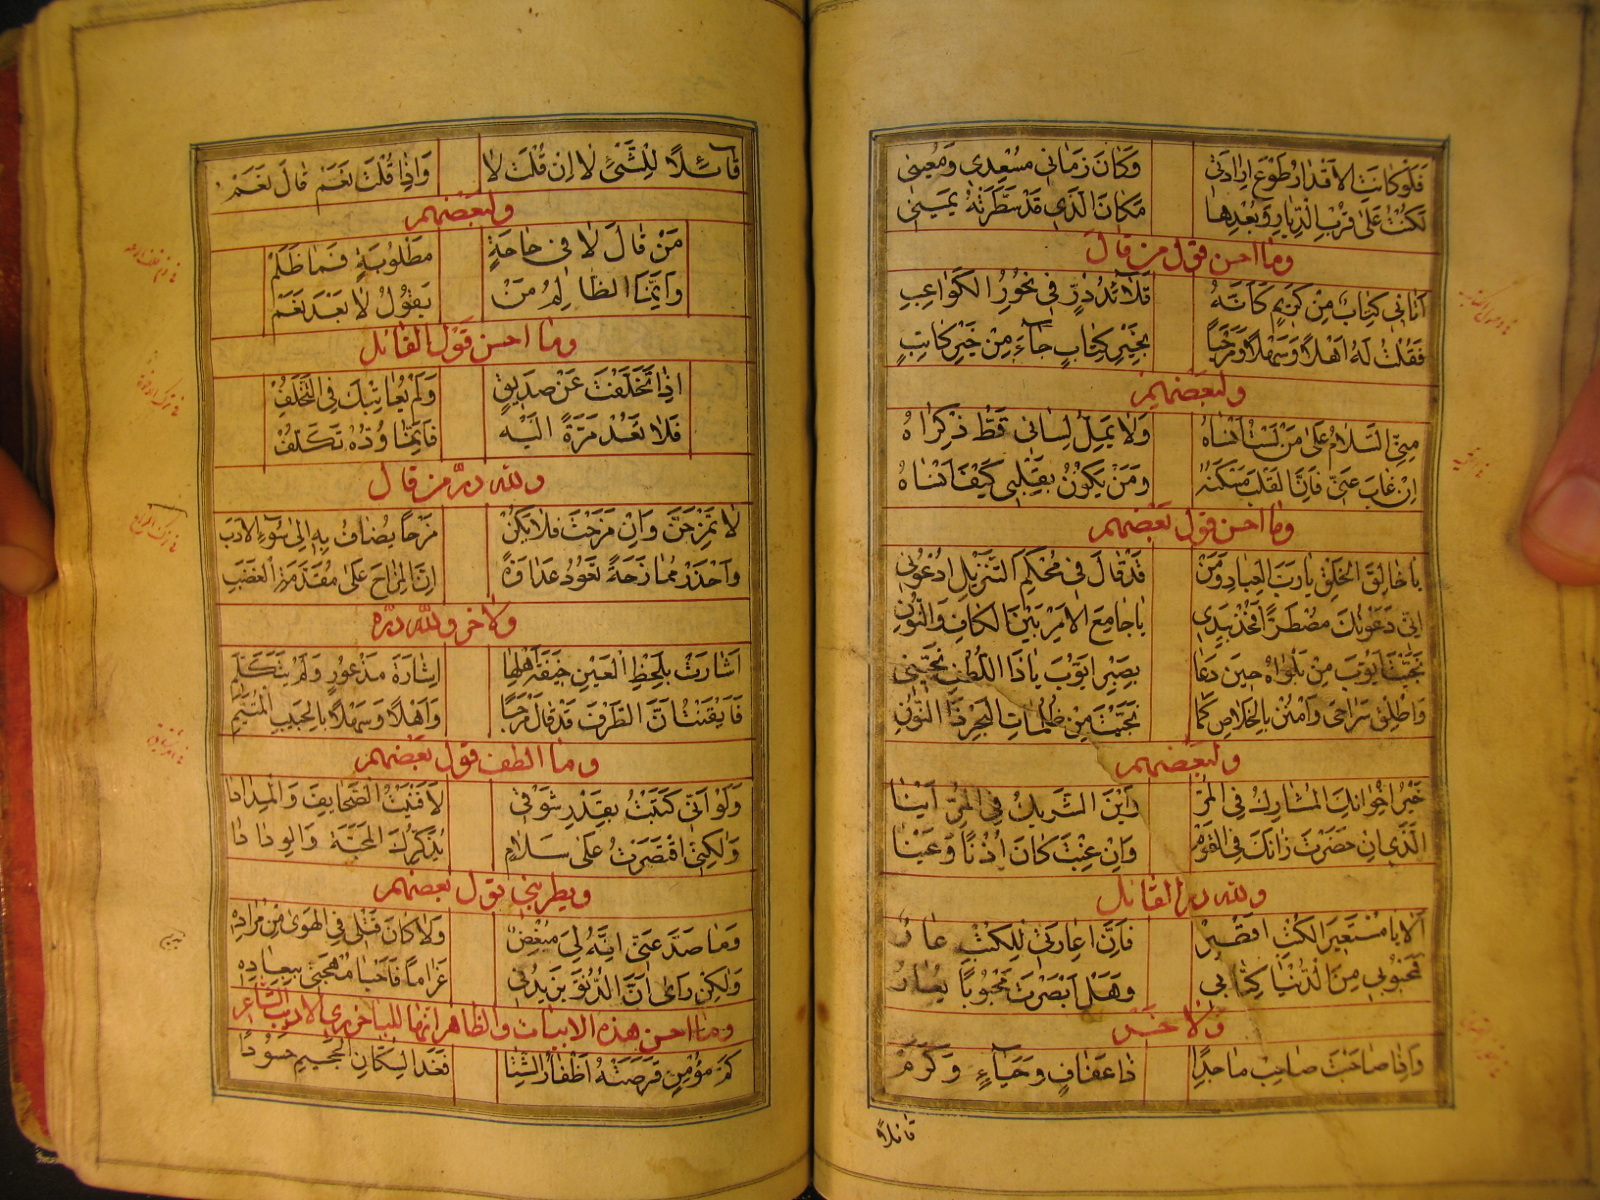 فَلَوْ كانَتِ الاَقْدارُ طَوْعَ اِرادَتى وَكانَ زَمانى مُسْعِدى وَمُعينى
لَكُنْتُ عَلى قُرْبِ الدِّيارِ وَبُعْدِها مَكانَ الَّذى قَدْ سَطَّرَتْهُ يَمينى
وما احسن قول من قال
اَتانى كِتابٌ مِنْ كَريمٍ كَاَنَّهُ قَلائِدُ دُرٍّ فى نُحُورِ الكَواعِبِ
فَقُلْتُ لَهُ اَهْلاً وَسَهْلاً وَمَرْحَباً بِخَيْرِ كِتابٍ جآءَ مِنْ خَيْرِ كاتِبٍ
ولبعضهم
مِنِّى السَّلامُ عَلى مَنْ لَسْتُ اَنْساهُ وَلا يَمِلُّ لِسانى قَطُّ ذِكْراهُ
اِنْ غابَ عَنّى فَاِنَّ القَلْبَ مَسْكَنُهُ وَمَنْ يَكُونُ بِقَلْبى كَيْفَ اَنْساهُ
وما احسن قول بعضهم
يا خالِقَ الخَلْقِ يا رَبَّ العِبادِ وَمَنْ قَدْ قالَ فى مُحْكَمِ التَّنْزيلِ اُدْعُونى
اِنّى دَعَوْتُكَ مُضْطَرًّا فَخُذْ بِيَدى يا جامِعَ الاَمْرِ بَيْنَ الكافِ وَالنُّونِ
نَجَّيْتَ اَيُّوبَ مِنْ بَلْواهُ حينَ دَعا بِصَبْرِ اَيُّوبَ يا ذَا اللُّطْفِ نَجّينى
وَاَطْلِقْ سَراحى وَامْنُنْ بِالخَلاصِ كَما نَجَّيْتَ مِنْ ظُلُماتِ البَحْرِ ذَا النُّونِ
ولبعضهم
خَيْرُ اِخْوانِكَ المُشارِكُ فِى المُرِّ وَاَيْنَ الشَّريكُ فِى المُرِّ اَيْنا
الَّذى اِنْ حَضَرْتَ زانَكَ فِى القَوْمِ وَاِنْ غِبْتَ كانَ اُذْنًا وَعَيْنا
ولله در القائل
اَلا يا مُسْتَعيرَ الكُتْبِ اقْصِرْ فَاِنَّ اِعارَتى لِلكُتْبِ عارُ
فَمَحْبُوبى مِنَ الدُّنْيا كِتابى وَهَلْ اَبْصَرْتَ مَحْبُوباً يُعارُ
ولاخر
وَاِذا صاحَبْتَ صاحِبْ ماجِدًا ذا عَفافٍ وَحَيآءٍ وَكَرَمْ
قائلاً
قائِلاً لِلشَّىْءِ لا اِنْ قُلْتَ لا وَاِذا قُلْتَ نَعَمْ قالَ نَعَمْ
ولبعضهم
مَنْ قالَ لا فى حاجَةٍ مَطْلُوبَةٍ فَما ظَلَمْ
وَاِنَّمَا الظّالِمُ مَنْ يَقُولُ لا بَعْدَ نَعَمْ
وما احسن قول القائل
اِذا تَخَلَّفْتَ عَنْ صَديقٍ وَلَمْ يُعاتِبْكَ فِى التَّخَلُّفْ
فَلا تَعُدْ مَرَّةً اِلَيْهِ فَاِنَّما وُدُّهُ تَكَلُّفْ
ولله در من قال
لا تَمْزَحَنَّ وَاِنْ مَزَحْتَ فَلا يَكُنْ مَزْحاً يُضافُ بِهِ اِلى سُوءِ الاَدَبِ
وَاحْذَرْ مُمازَحَةً تَعُودُ عَداوَةً اِنَّ المِزاحَ عَلى مُقَدَّمَةِ الغَضَبِ
ولاخر ولله دره
اَشارَتْ بِلَحْظِ العَيْنِ خيفَةَ اَهْلِها اِشارَةَ مَذْعُورٍ وَلَمْ يَتَكَلَّمِ
فَاَيْقَنْتُ اَنَّ الطَّرْفَ قَدْ قالَ مَرْحَبًا وَاَهْلاً وَسَهْلاً بِالحَبيبِ المُتَيَّمِ
وما الطف قول بعضهم
وَلَوْ اَنّى كَتَبْتُ بِقَدْرِ شَوْقى لَاَفْنَيْتُ الصَّحايِفَ وَالمِدادا
وَلكِنّى اقْتَصَرْتُ عَلى سَلامٍ يُذَكِّرُكَ المَحَبَّةَ وَالوِدادا
ويطربنى قول بعضهم
وَما صَدَّ عَنّى اِنَّهُ لِىَ مُبْغِضٌ وَلا كانَ قَتْلى فِى الهَوى مِنْ مُرادِهِ
وَلكِنْ رَاى اَنَّ الدُّنُوَّ يَزيدُنى غَراماً فَاَحْيا مُهْجَتى بِبِعادِهِ
وما احسن هذه الابيات والظاهر انها للباخرزى الاديب الشاعر
كَمْ مُؤْمِنٍ قَرَصَتْهُ اَظْفارُ الشِّتا فَغَدا لِسُكّانِ الجَحيمِ حَسُودًا